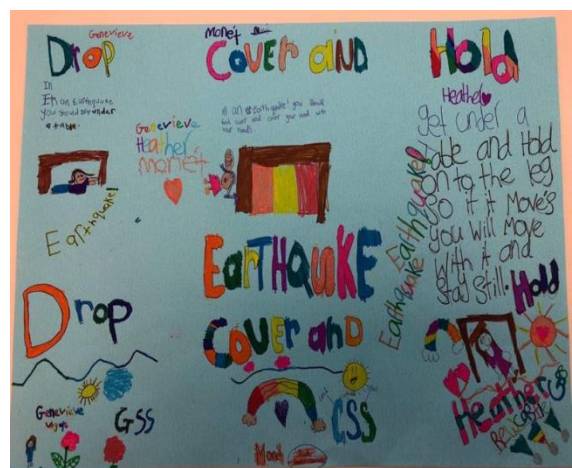 Genevieve
Drop
In
an Earthquake
you should
under
a table.
Earthquake!
Drop
Genevieve
GSS
Genevieve
Heather
Monét
Monét
Cover and
you should
find cover and cover your head with
your hands
EarTHQUaKE
Cover and
CSS
Monét
Hold
Heather
get under a
table and Hold
on to the leg
So if it Move's
you will Move
With it and
Stay Still.
Earthquake!
Earthquake
Hold
Heather